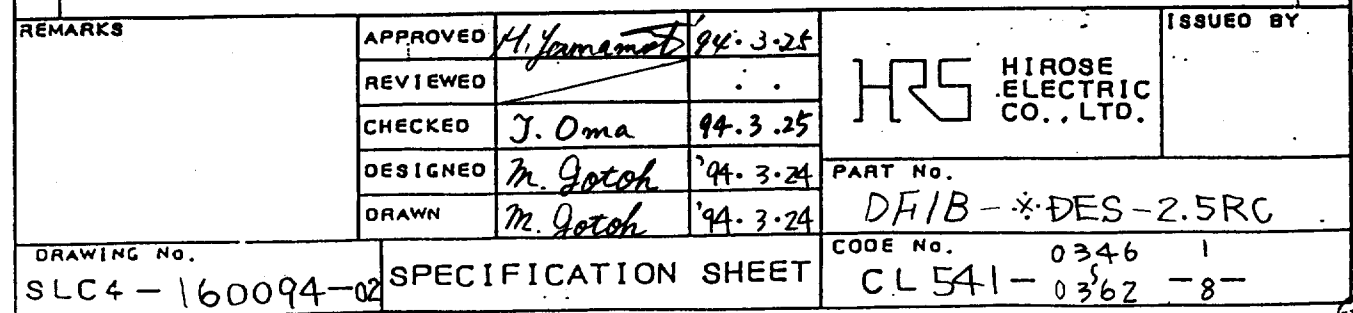 REMARKS
APPROVED H. Yamamoto '94.3.25
REVIEWED . .
CHECKED J. Oma 94.3.25
DESIGNED M. Gotoh '94.3.24
DRAWN M. Gotoh '94.3.24
HRS HIROSE
ELECTRIC
CO.,LTD.
ISSUED BY
PART No.
DF1B-※DES-2.5RC
DRAWING No.
SLC4-160094-02
SPECIFICATION SHEET
CODE No.
0346 1
CL541- 5 -8-
0362